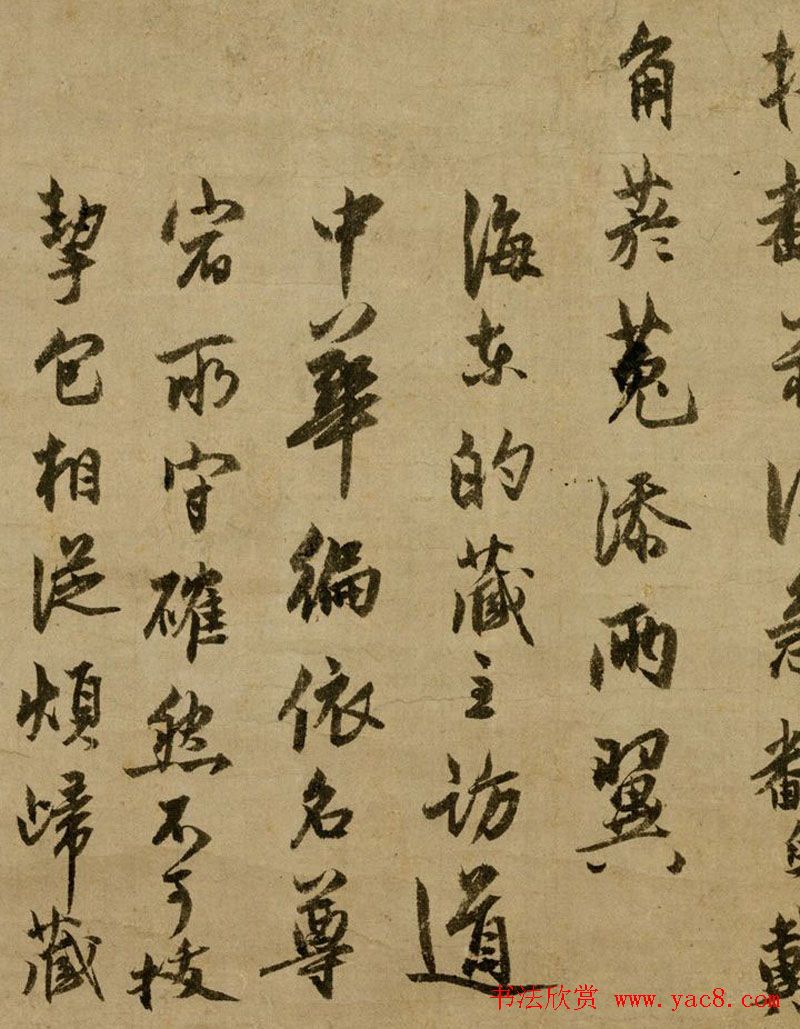 角菸菟添兩翼
海東的藏主訪道
中華徧依名尊
宿所守確然不可拔
挈包相從煩歸藏
书法欣赏 www.yac8.com